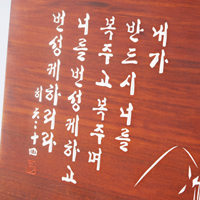 내가
반드시 너를
복 주고 복 주며
너를 번성케 하고
번성케 하리라
히 6:14